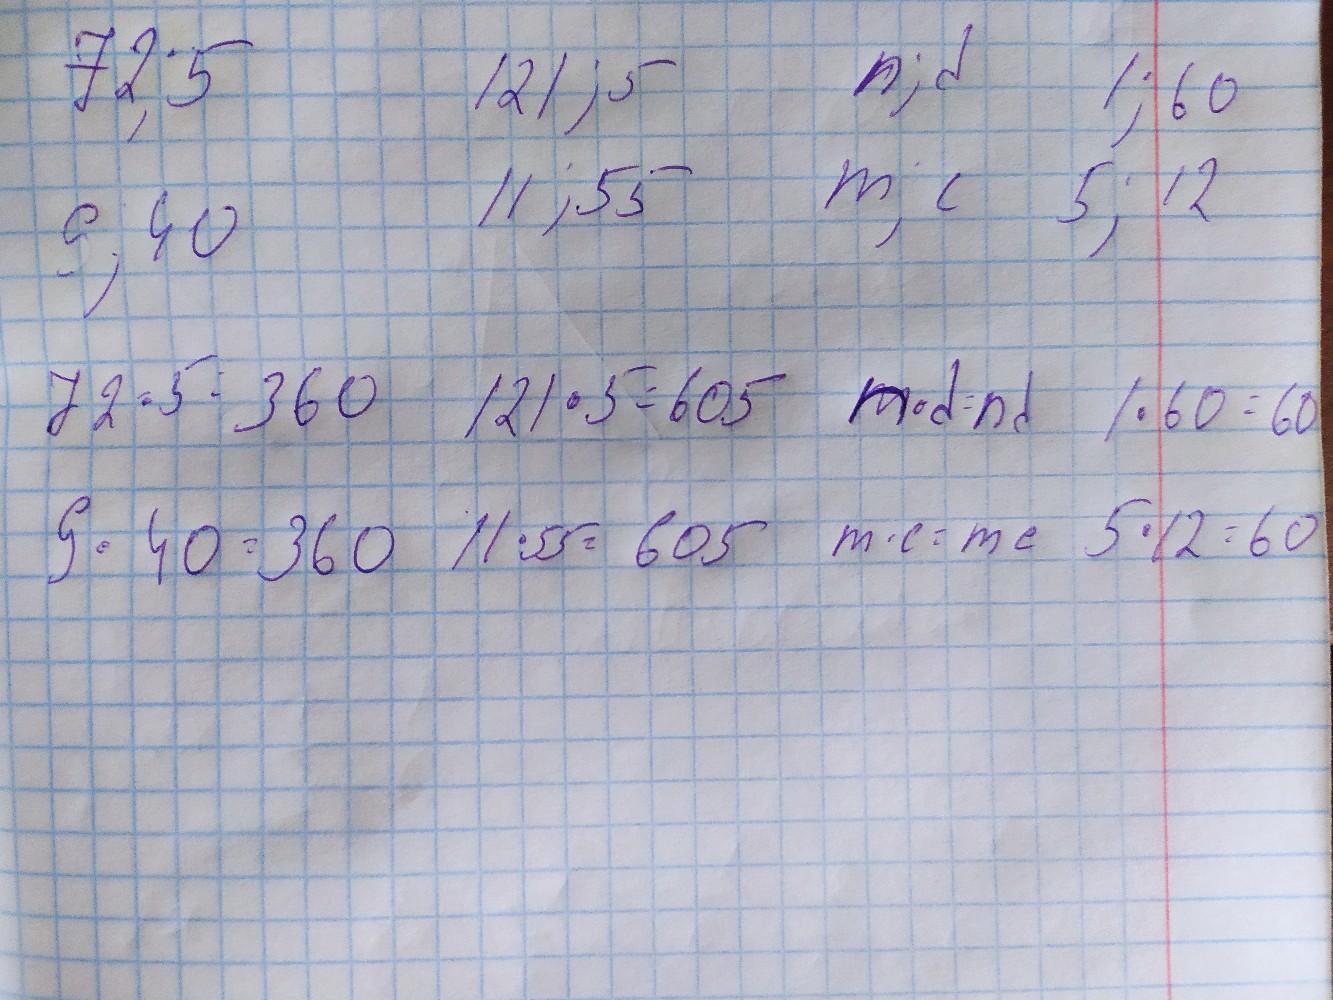 72;5 121;5 n;d 1;60
9;40 11;55 m;c 5;12
72·5=360 121·5=605 n·d=nd 1·60=60
9·40=360 11·55=605 m·c=mc 5·12=60